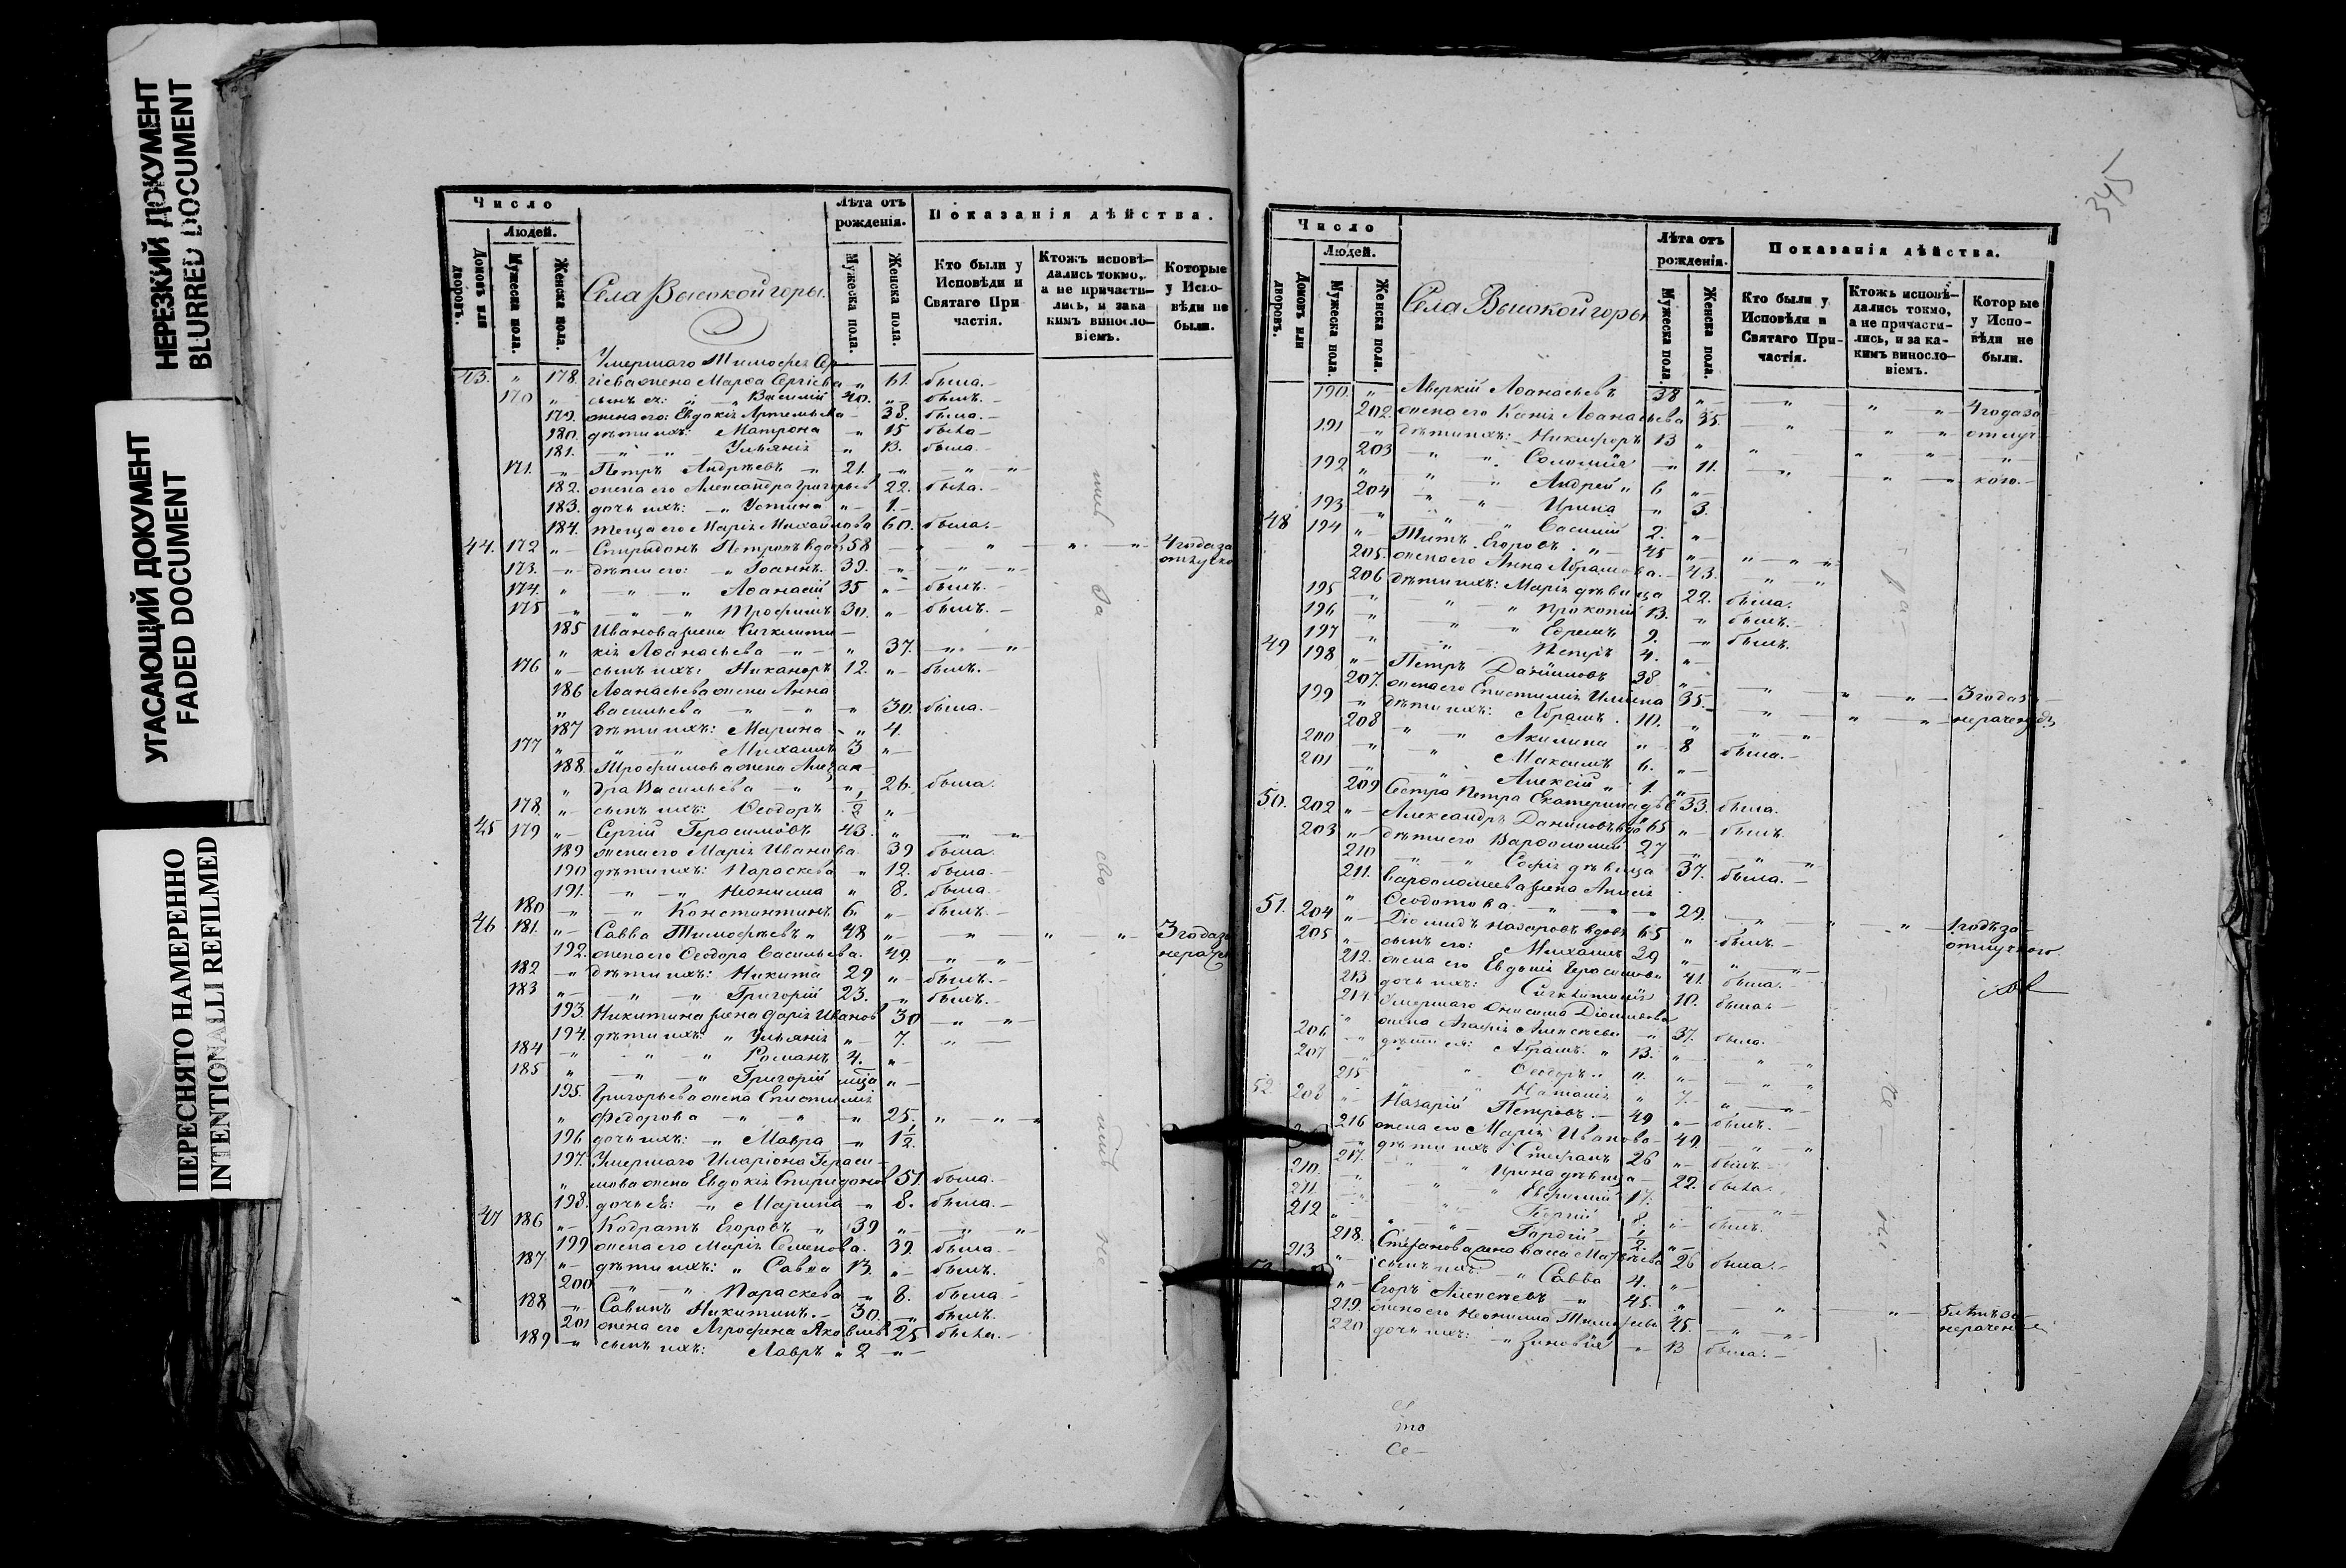 НЕРЕЗКИЙ ДОКУМЕНТ
BLURRED DOCUMENT
УГАСАЮЩИЙ ДОКУМЕНТ
FADED DOCUMENT
ПЕРЕСНЯТО НАМЕРЕННО
INTENTIONALLI REFILMED
Число
Людей.
Домовъ или дворовъ.
Мужеска пола.
Женска пола.
Села Высокой горы.
Лѣта отъ рожденія.
Мужеска пола.
Женска пола.
Показанія дѣйства.
Кто были у Исповѣди и Святаго Причастія.
Ктожъ исповѣдались токмо, а не причастились, и за какимъ винословіемъ.
Которые у Исповѣди не были.
Умершаго Тимофея Сер-
43. " 178. гіева жена Марѳа Сергіева " 61. была.
170 " сынъ ея: " Василій 40. " былъ.
179. жена его: Евдокія Артемьева 38. была.
180. дѣти ихъ: Матрона " 15 была
181. " " Ульянія " 13. была.
171. " Петръ Андрѣевъ " 21. " " "
182. жена его Александра Григорьев 22. была.
183. дочь ихъ: " Устина " 1.
184. теща его Марія Михайлова 60. была.
44. 172 " Спиридонъ Петровъ вдов 58 " " " " 4 года за
173. " дѣти его: " Іоаннъ 39. " " " отлучко
174. " " " Аѳанасій 35 " былъ.
175 " " " Трофимъ 30. " былъ.
185 Иванова жена Сигклити-
" кія Аѳанасьева " " 37. " "
176 " сынъ ихъ: Никаноръ 12. " былъ.
186 Аѳанасьева жена Анна
" Васильева " " " 30. была.
187 дѣти ихъ: Марина " 4.
177 " " " Михаилъ 3 "
188. Трофимова жена Алексан-
" дра Васильева " " 26. была.
178. " сынъ ихъ: Ѳеодоръ ½ "
45 179 " Сергій Герасимовъ 43. " " "
189 жена его Марія Иванова. 39 была.
190 дѣти ихъ: Параскева " 12. была.
191. " " Неонилла " 8. была.
180 " " Константинъ 6. " былъ.
46 181. " Савва Тимофѣевъ " 48 " " " " 3 года за
192. жена его Ѳеодора Васильева. 49. " " нерачен
182 " дѣти ихъ: Никита 29 " былъ.
183 " " " Григорій 23. " былъ.
193. Никитина жена Дарія Иванов 30 " "
194. дѣти ихъ: " Ульянія " 7. "
184 " " " Романъ 4. "
185 " " " Григорій "
195. Григорьева жена Епистимія
" Федорова " " " 25. " " "
196 дочь ихъ: " Мавра " 1½.
197. Умершаго Иларіона Гераси-
" мова жена Евдокія Спиридонов 51. была.
198. дочь ея: " Марина " 8. была.
47 186 " Кодратъ Егоровъ " 39 " " "
199 жена его Марія Семенова. 39. была.
187 " дѣти ихъ: " Савва 13. " былъ.
200 " " Параскева " 8. была
188 " Савинъ Никитинъ. 30. " былъ.
201 жена его Агрофена Яковлев 25 была.
189 " сынъ ихъ: Лавръ " 2 "
345
Число
Людей.
Домовъ или дворовъ.
Мужеска пола.
Женска пола.
Села Высокой горы
Лѣта отъ рожденія.
Мужеска пола.
Женска пола.
Показанія дѣйства.
Кто были у Исповѣди и Святаго Причастія.
Ктожъ исповѣдались токмо, а не причастились, и за какимъ винословіемъ.
Которые у Исповѣди не были.
190. " Аверкій Аѳанасьевъ 38 " " " " 4 года за
202. жена его Ксенія Аѳанасьева 35. " " " отлуч
191 " дѣти ихъ: Никифоръ 13 " " " " "
203 " " Соломія " 11. " " " кою.
192 " " " Андрей " 6 "
204 " " Ирина " 3.
193. " " " Василій 2. "
48 194 " Титъ Егоровъ " 45 " " " "
205. жена его Анна Абрамова. 43. " "
206 дѣти ихъ: Марія дѣвица 22. была.
195 " " " Прокопій 13. " былъ.
196 " " " Ефремъ 9. " былъ.
197 " " Петръ 4. "
49 198 " Петръ Даниловъ 38 " " " " 3 года за
207. жена его Епистимія Ильина 35. " " " нерачен
199 " дѣти ихъ: Абрамъ. 10. " " "
208 " " Акилина " 8 была.
200 " " Максимъ 6. "
201 " " Алексій " 1. "
209 Сестра Петра Екатерина дѣв 33. была.
50. 202 " Александръ Даниловъ вдо 65 " былъ.
203 " дѣти его Варѳоломей 27 " " "
210 " " Софія дѣвица 37. была.
211. Варѳоломеева жена Анисія
" Ѳеодотова " " " 29. " " " 1 годъ за
51. 204 " Діомидъ Назаровъ вдов 65 " былъ. отлучкою.
205 " сынъ его: Михаилъ 39 " " "
212. жена его Евдокія Герасимова 41. была.
213 дочь ихъ: Сигклитикія 10. была.
214. Умершаго Онисима Діомидова
" жена Агафія Алексѣева " 37. была.
206 " дѣти ея: Абрамъ. " 13. " " "
207 " " Ѳеодоръ " 11. " " "
215 " " Наталія " 7. " "
52. 208 " Назарій Петровъ. 49 " былъ.
216 жена его Марія Иванова 49. " "
" дѣти ихъ Стефанъ 26 " былъ.
217. " " Ирина дѣвица 22. была.
210. " " " Евфимій 17. " "
211 " " Георгій 8. " былъ.
212 " " Гордій ½. "
218. Стефанова жена Васса Матвѣева 26 была.
213 " сынъ ихъ: " Савва 4. "
" Егоръ Алексѣевъ " 45. " " " 5 лѣтъ за
219. жена его Неонилла Тимофеева 45. " " нераченіе
220 дочь ихъ: " Зиновія " 13 была.
то
Се-